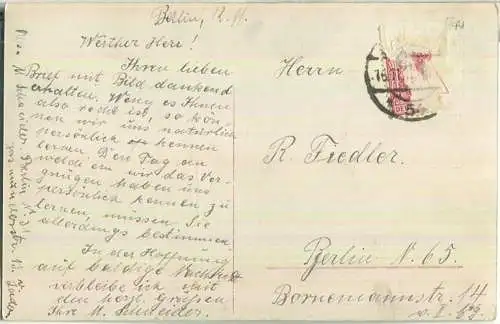 Berlin, 12. 11.
Werther Herr!
Ihren lieben
Brief mit Bild dankend
erhalten. Wenn es Ihnen
also recht ist, so kön-
nen wir uns natürlich
persönlich kennen
lernen. Den Tag an
welchem wir das Ver-
gnügen haben uns
persönlich kennen zu
lernen, müssen Sie
allerdings bestimmen.
In der Hoffnung
auf baldige Nachricht
verbleibe ich mit
den herzl. Grüßen
Ihre M. Schneider.
M. Schneider, Berlin N. 31
Laden
Herrn
R. Fiedler.
Berlin N. 65.
Bornemannstr. 14